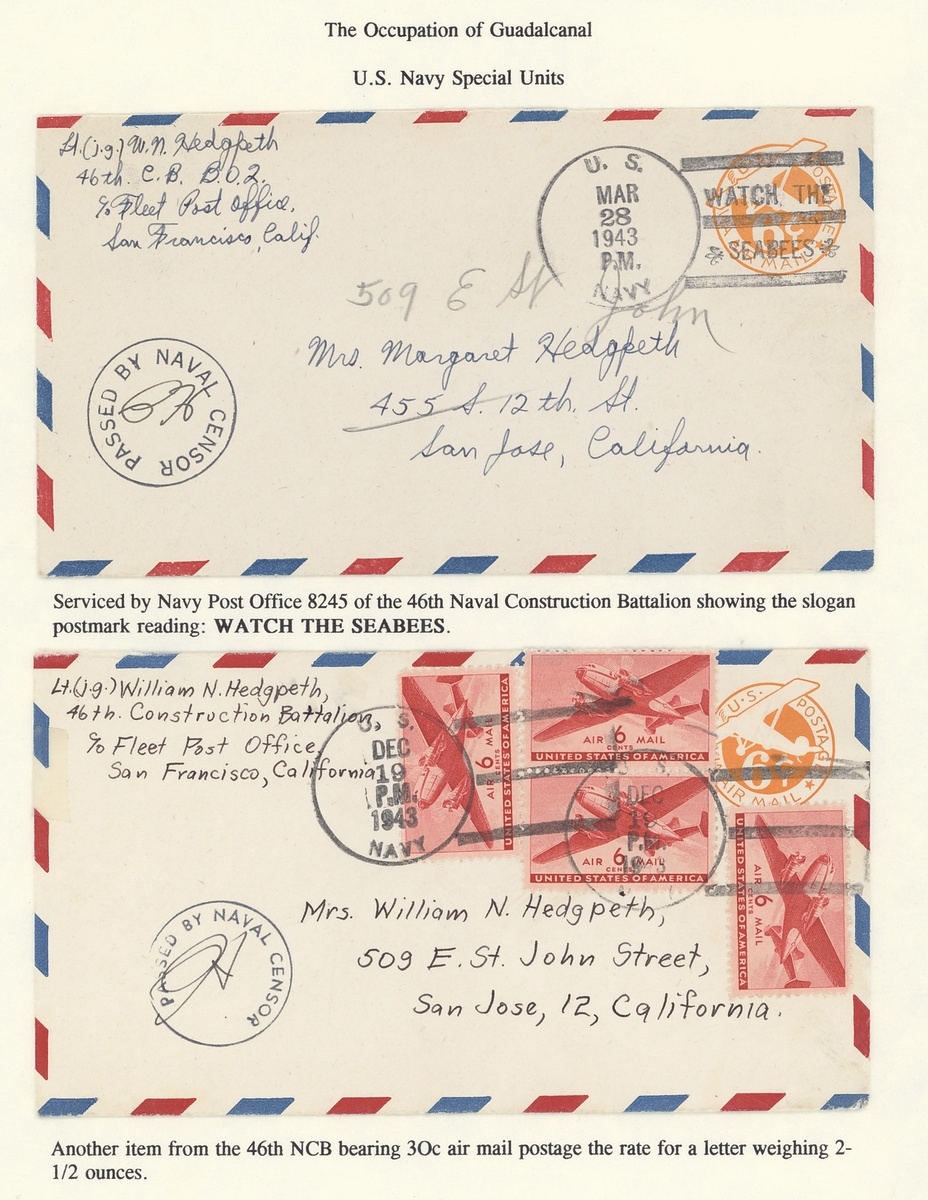 The Occupation of Guadalcanal
U.S. Navy Special Units
Lt.(j.g.) W.N. Hedgpeth
46th. C.B. B.O.2.
℅ Fleet Post Office,
San Francisco, Calif.
U. S.
MAR
28
1943
P.M.
NAVY
WATCH THE
SEABEES
6c
AIR MAIL
509 E St John
Mrs. Margaret Hedgpeth
455 S. 12th. St.
San Jose, California.
PASSED BY NAVAL CENSOR
Serviced by Navy Post Office 8245 of the 46th Naval Construction Battalion showing the slogan
postmark reading: WATCH THE SEABEES.
Lt.(j.g.) William N. Hedgpeth,
46th. Construction Battalion,
℅ Fleet Post Office,
San Francisco, California
U. S.
DEC
19
P.M.
1943
NAVY
AIR 6 MAIL
CENTS
UNITED STATES OF AMERICA
AIR 6 MAIL
CENTS
UNITED STATES OF AMERICA
AIR 6 MAIL
CENTS
UNITED STATES OF AMERICA
DEC
P.M.
U.S. POSTAGE
6c
AIR MAIL
AIR 6 MAIL
CENTS
UNITED STATES OF AMERICA
Mrs. William N. Hedgpeth,
509 E. St. John Street,
San Jose, 12, California.
PASSED BY NAVAL CENSOR
Another item from the 46th NCB bearing 3Oc air mail postage the rate for a letter weighing 2-
1/2 ounces.